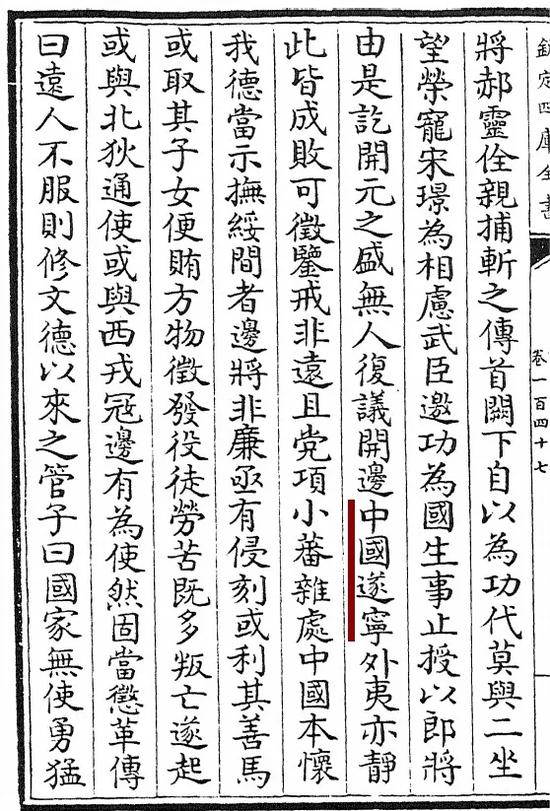 欽定四庫全書
卷一百四十七
將郝靈佺親捕斬之傳首闕下自以為功代莫與二坐
望榮寵宋璟為相慮武臣邀功為國生事止授以郎將
由是訖開元之盛無人復議開邊中國遂寧外夷亦靜
此皆成敗可徵鑒戒非遠且党項小蕃雜處中國本懷
我德當示撫綏間者邊將非廉亟有侵刻或利其善馬
或取其子女便賄方物徵發役徒勞苦既多叛亡遂起
或與北狄通使或與西戎冦邊有為使然固當懲革傳
曰遠人不服則修文德以來之管子曰國家無使勇猛